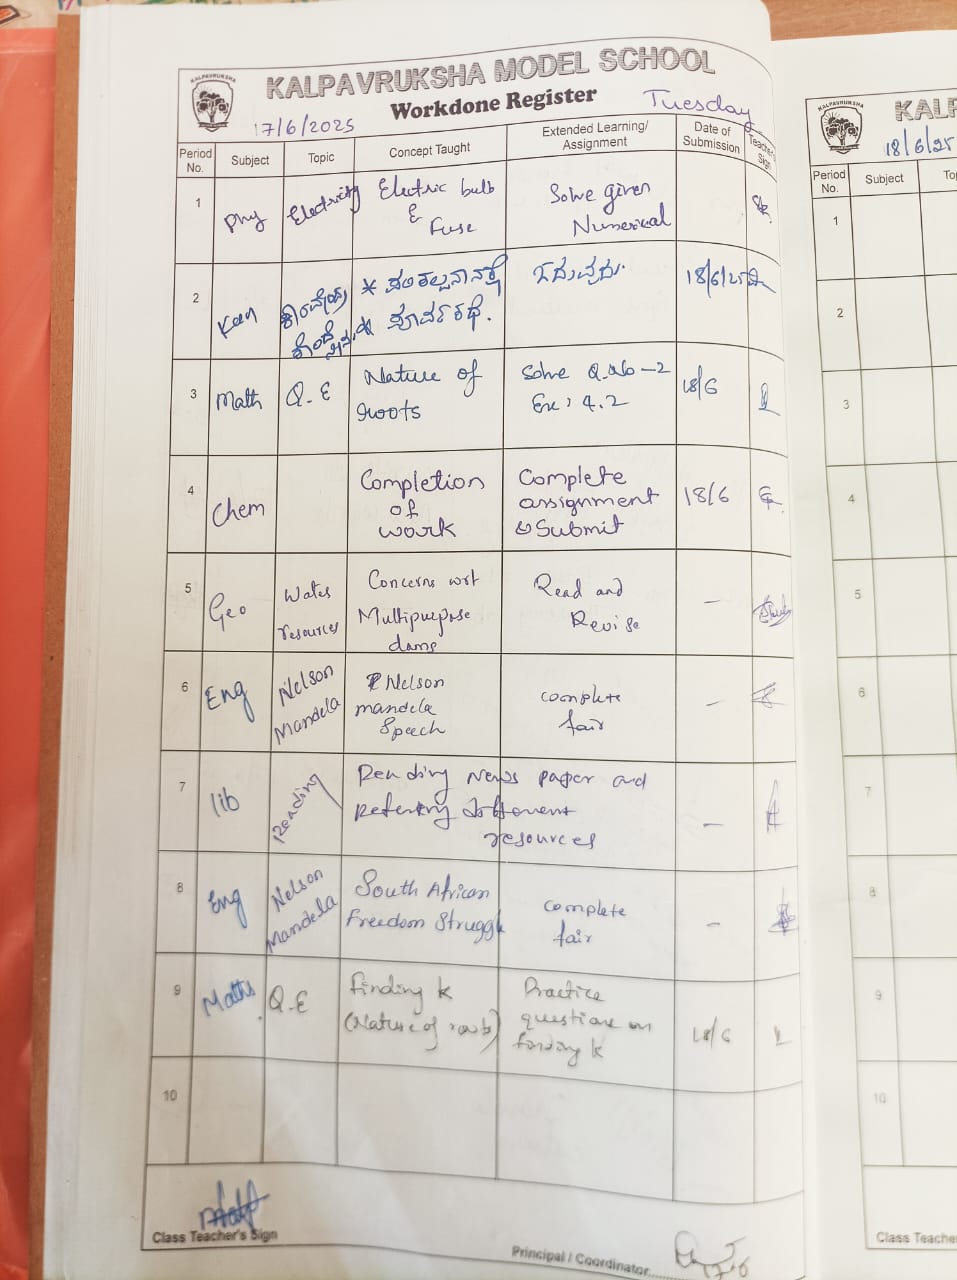 KALPAVRUKSHA
KALPAVRUKSHA MODEL SCHOOL
Workdone Register
17/6/2025 Tuesday
Period No. Subject Topic Concept Taught Extended Learning/ Assignment Date of Submission Teacher's Sign
1 Phy Electricity Electric bulb & Fuse Solve given Numerical
2 Kan 18/6/25
3 Math Q.E Nature of roots Solve Q.No-2 Ex: 4.2 18/6
4 Chem Completion of work Complete assignment & Submit 18/6
5 Geo Water resources Concerns wrt Multipurpose dams Read and Revise -
6 Eng Nelson Mandela Nelson mandela Speech complete fair -
7 lib Reading Reading News paper and Refering different resources -
8 Eng Nelson Mandela South African Freedom Struggle complete fair -
9 Maths Q.E Finding k (Nature of roots) Practice questions on finding k 18/6
10
Class Teacher's Sign
Principal / Coordinator
17-6
KALPAVRUKSHA
KALP
18/6/25
Period No. Subject To
1
2
3
4
5
6
7
8
9
10
Class Teache